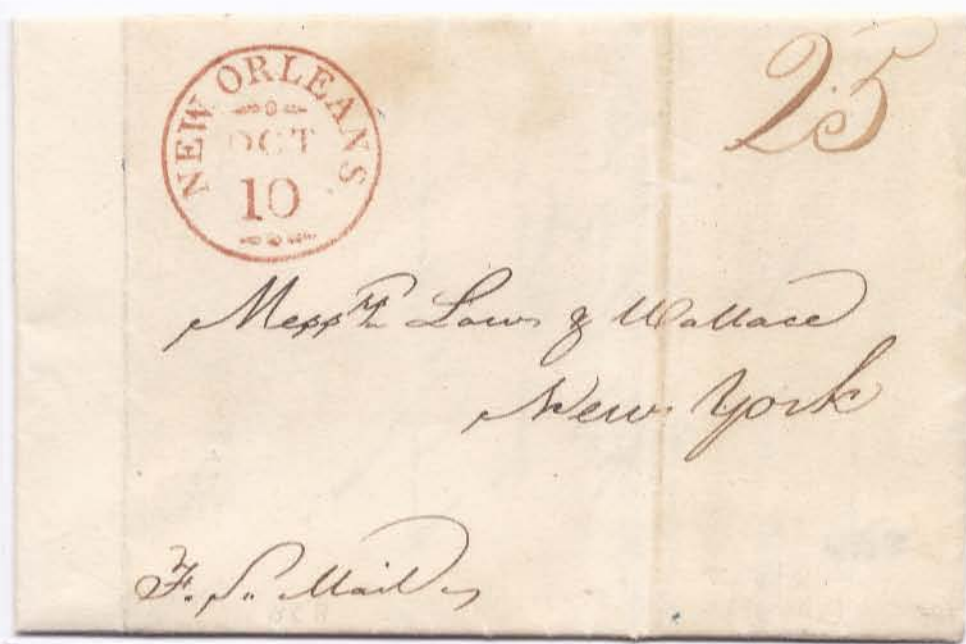 NEW ORLEANS
OCT
10
25
Messrs Laws & Wallace
New York
F. S. Mail